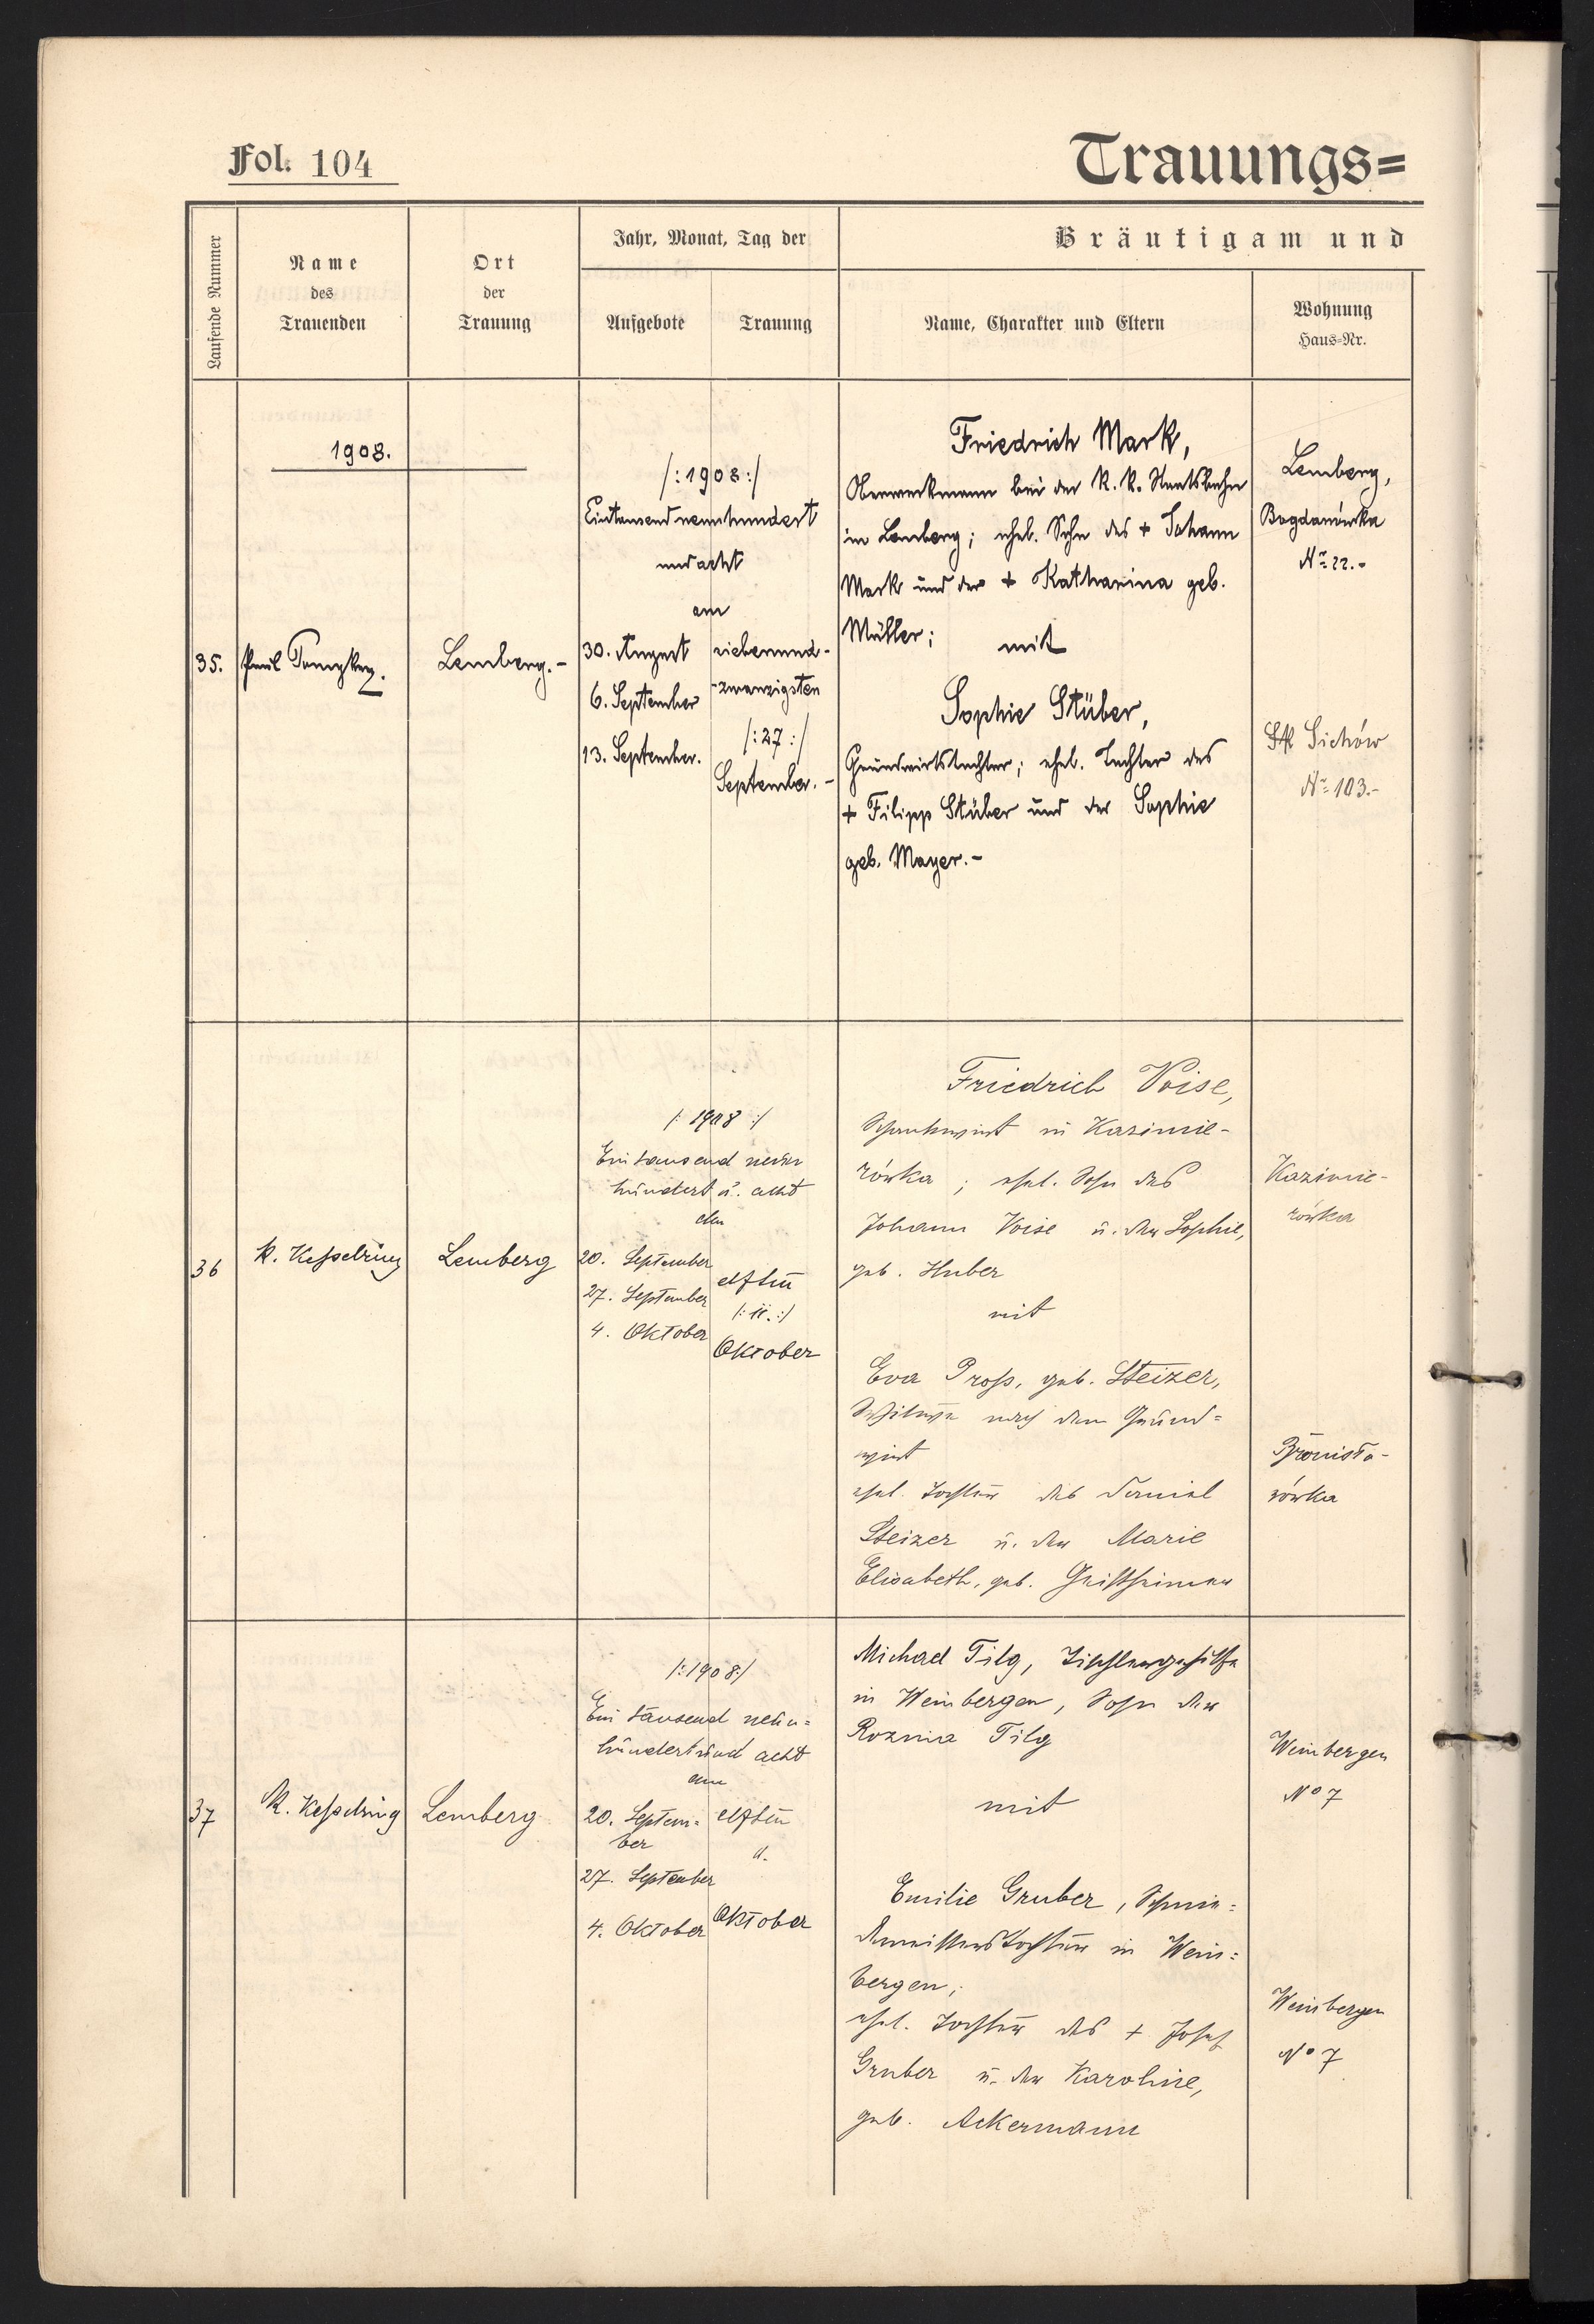 Fol. 104
Trauungs=
Laufende Nummer
Name
des
Trauenden
Ort
der
Trauung
Jahr, Monat, Tag der
Aufgebote
Trauung
Bräutigam und
Name, Charakter und Eltern
Wohnung
Haus-Nr.
1908.
35.
Paul
Lemberg.-
/:1908:/
Eintausendneunhundert
undacht
am
30. August
6. September
13. September.
siebenund-
-zwanzigsten
/:27:/
September.-
Friedrich Mark,
Oberwerkmann bei der K. K. Staatsbahn
in Lemberg; ehel. Sohn des + Johann
Mark und der + Katharina geb.
Müller; mit
Sophie Stüber,
Grundwirtstochter; ehel. Tochter des
+ Filipp Stüber und der Sophie
geb. Mayer.-
Lemberg,
Bogdanówka
Nr. 22.-
Sichów
Nr. 103.-
36
R. Kesselring
Lemberg
/: 1908 :/
Eintausend neun
hundert u. acht
am
20. September
27. September
4. Oktober
elften
/: 11. :/
Oktober
Friedrich Voise,
Schankwirt in Kazimie-
rówka; ehel. Sohn des
Johann Voise u. der Sophie,
geb. Huber
mit
Eva Proß, geb. Steizer,
Witwe nach dem Grund=
wirt
ehel. Tochter des Daniel
Steizer u. der Marie
Elisabeth, geb.
Kazimie-
rówka
37
R. Kesselring
Lemberg
/:1908:/
Ein tausend neun=
hundert und acht
am
20. Septem=
ber
27. September
4. Oktober
elften
11.
Oktober
Michael Tilg, Tischlergehilfe
in Weinbergen, Sohn der
Tilg
mit
Emilie Gruber, Schmie=
demeisterstochter in Wein=
bergen;
ehel. Tochter des + Josef
Gruber u. der Karoline,
geb. Ackermann
Weinbergen
No 7
Weinbergen
No 7